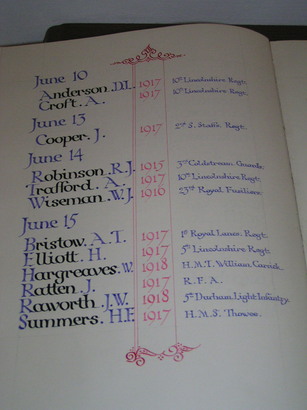 June 10
Anderson. D.L. 1917 10th Lincolnshire Regt.
Croft. A. 1917 10th Lincolnshire Regt.
June 13
Cooper. J. 1917 2nd S. Staffs. Regt.
June 14
Robinson. R.J. 1915 3rd Coldstream Guards.
Trafford. A. 1917 10th Lincolnshire Regt.
Wiseman. W.J. 1916 23rd Royal Fusiliers.
June 15
Bristow. A.T. 1917 1st Royal Lancs. Regt.
Elliott. H. 1917 5th Lincolnshire Regt.
Hargreaves. W. 1918 H.M.T. William
Ratten. J. 1917 R.F.A.
Raworth. J.W. 1918 5th Durham Light Infantry.
Summers. H.E. 1917 H.M.S.